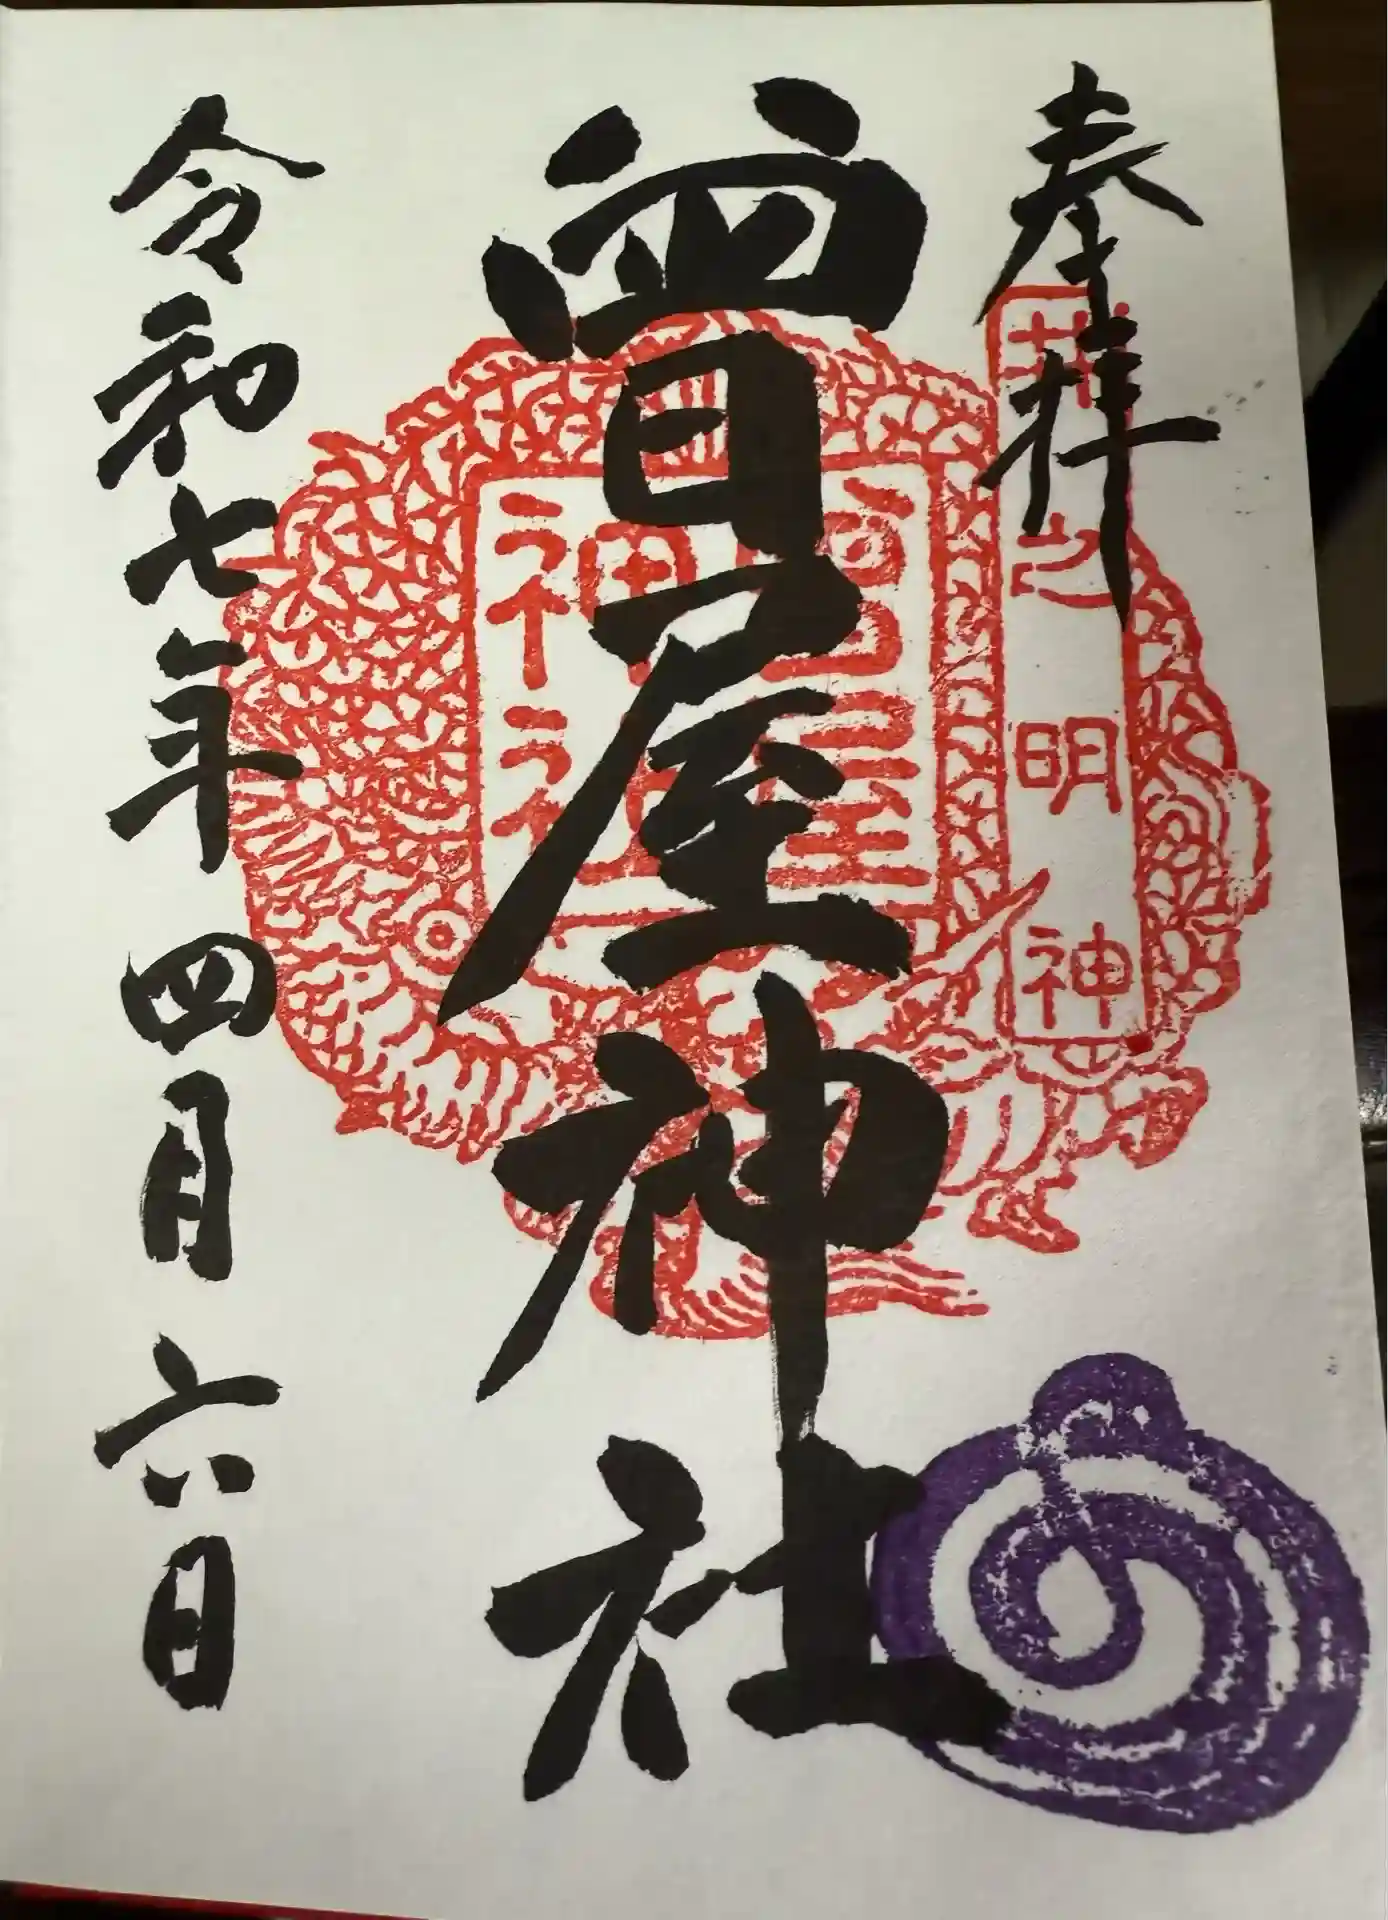 奉拝
曽屋神社
令和七年四月六日
井之明神
曽屋
神社